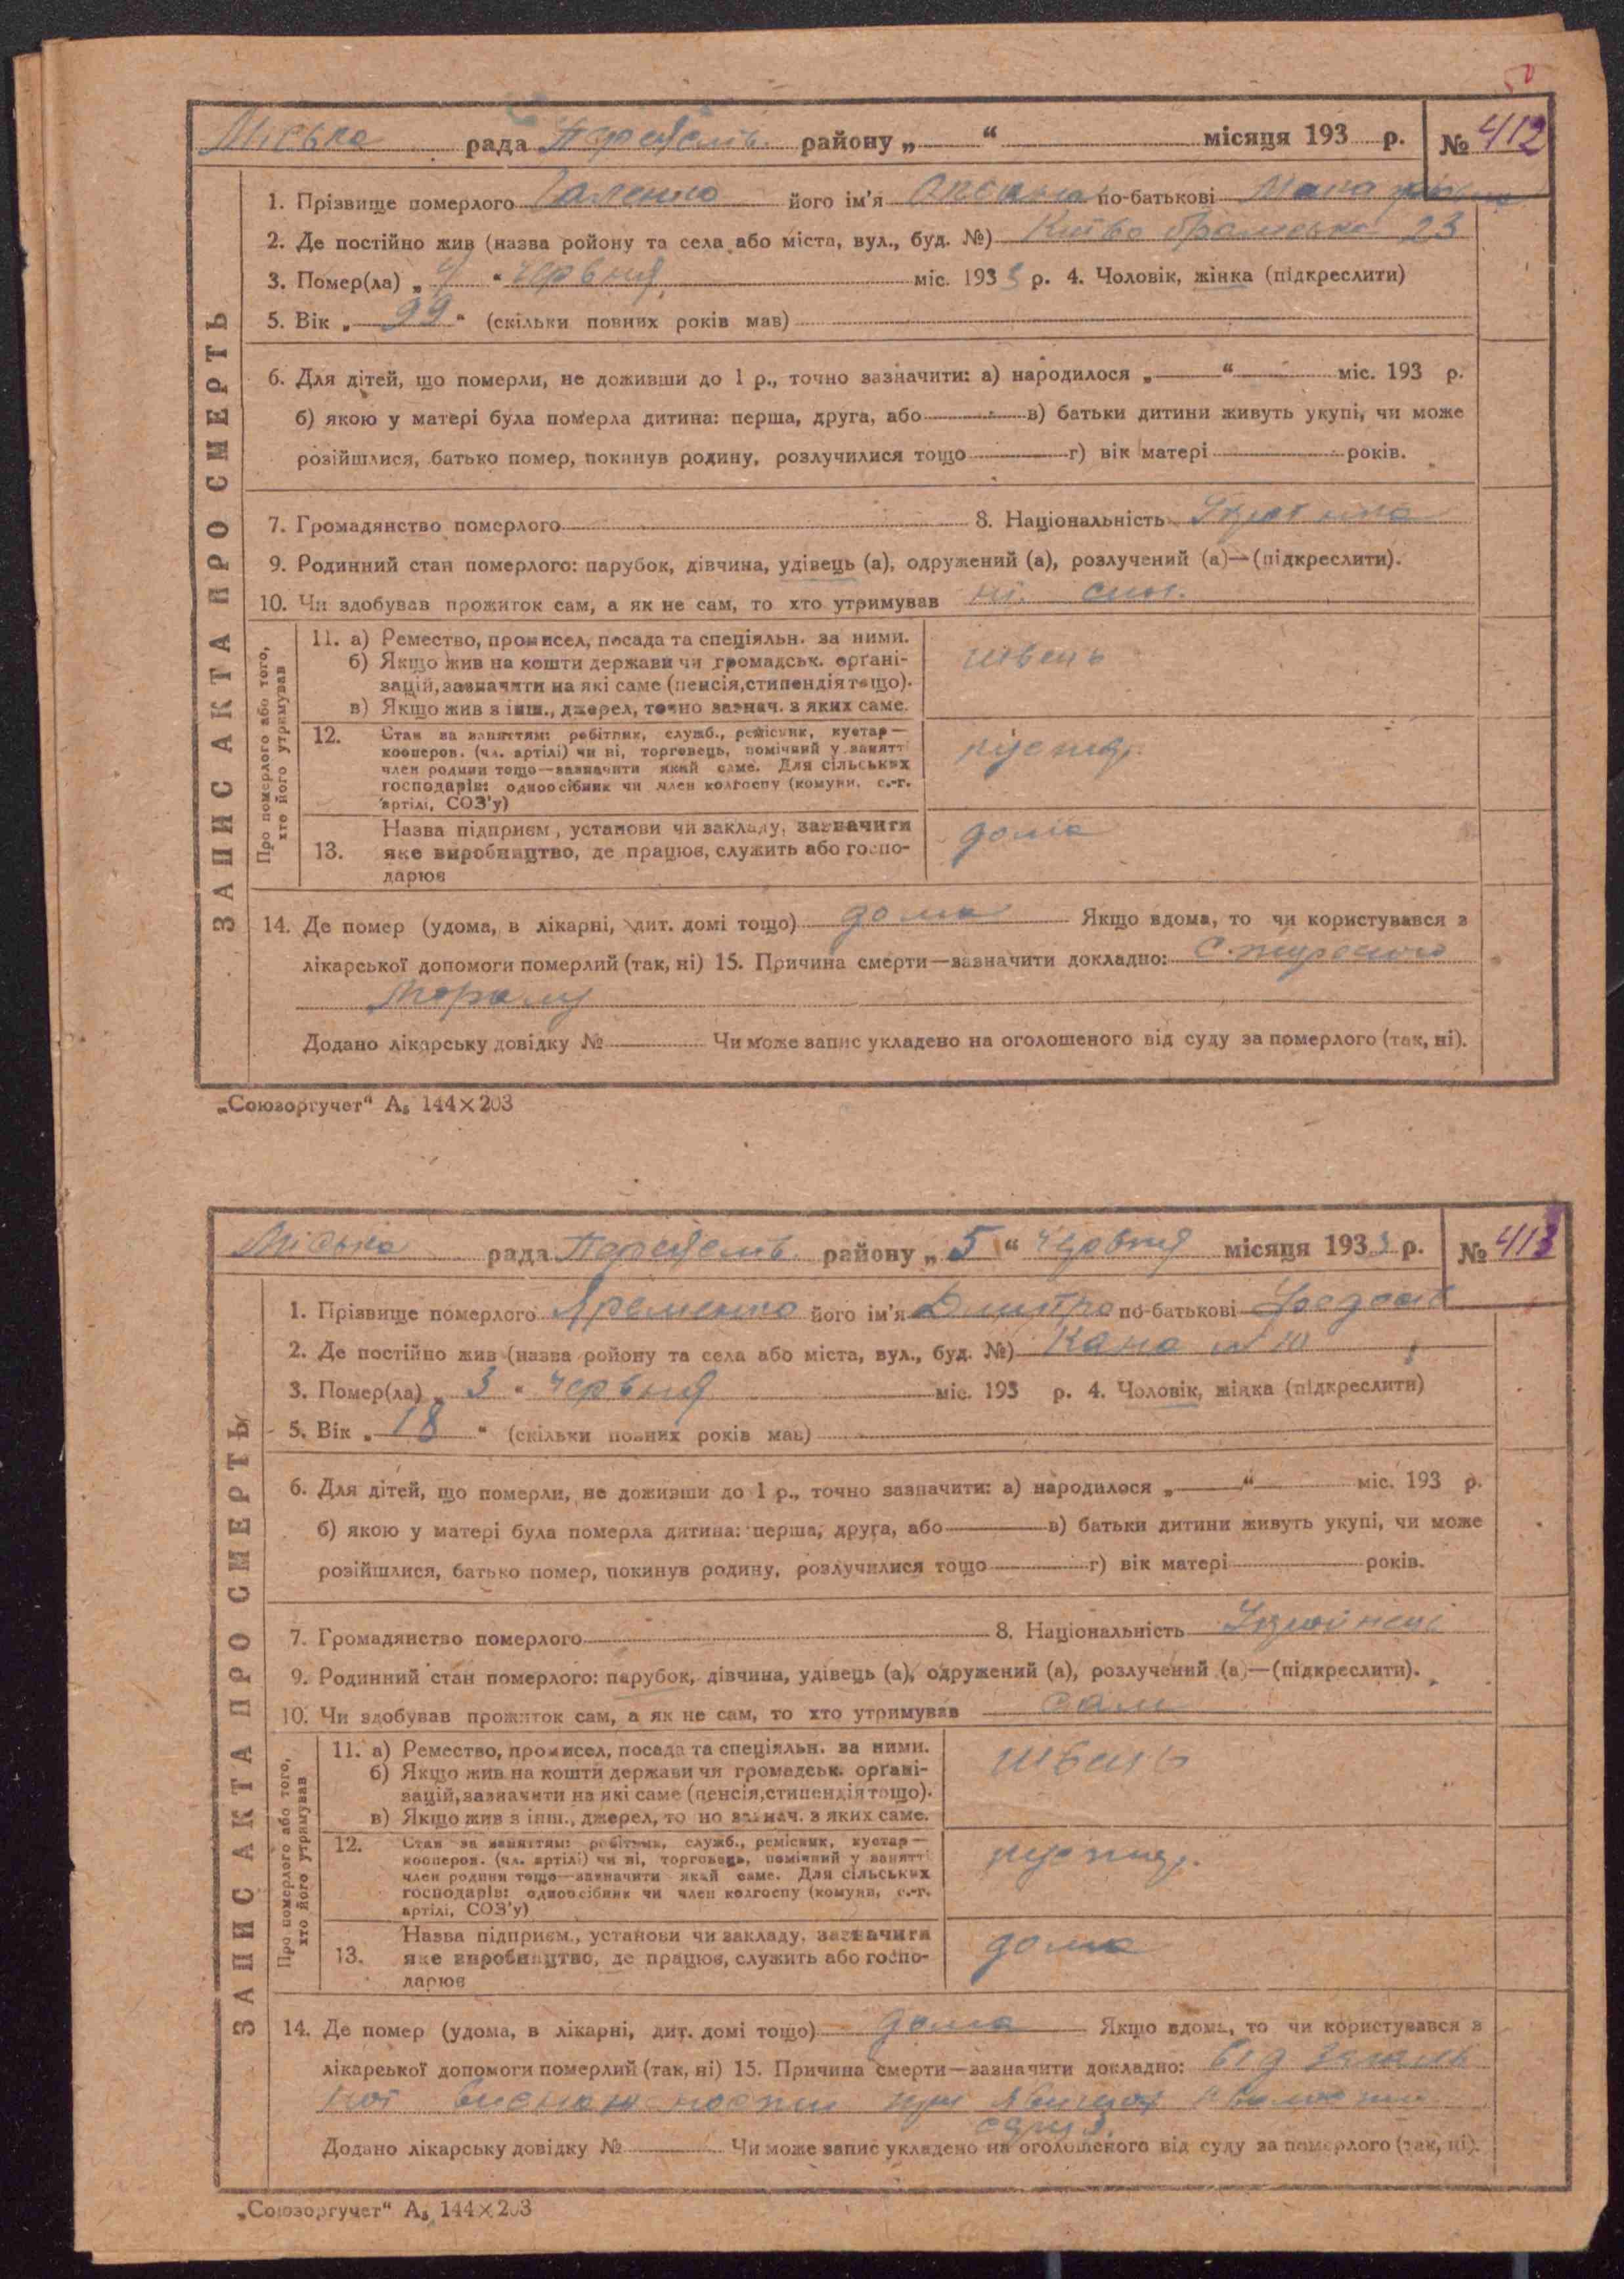 Міська рада Переяслів. району „ “ місяця 193 р. № 412
ЗАПИС АКТА ПРО СМЕРТЬ
1. Прізвище померлого його ім'я по-батькові
2. Де постійно жив (назва ройону та села або міста, вул., буд. №) Київо Брамська 23
3. Помер(ла) „ 4 “ червня міс. 1933 р. 4. Чоловік, жінка (підкреслити)
5. Вік „ 99 “ (скільки повних років мав)
6. Для дітей, що померли, не доживши до 1 р., точно зазначити: а) народилося „ “ міс. 193 р.
б) якою у матері була померла дитина: перша, друга, або в) батьки дитини живуть укупі, чи може
розійшлися, батько помер, покинув родину, розлучилися тощо г) вік матері років.
7. Громадянство померлого 8. Національність
9. Родинний стан померлого: парубок, дівчина, удівець (а), одружений (а), розлучений (а)—(підкреслити).
10. Чи здобував прожиток сам, а як не сам, то хто утримував ні. син.
Про померлого або того, хто його утримував
11. а) Ремество, промисел, посада та спеціяльн. за ними.
б) Якщо жив на кошти держави чи громадськ. орґані-
зацій, зазначити на які саме (пенсія, стипендія тощо).
в) Якщо жив з інш., джерел, точно зазнач. з яких саме.
швець
12. Стан за заняттям: робітник, служб., ремісник, кустар—
кооперов. (чл. артілі) чи ні, торговець, помічний у занятті
член родини тощо—зазначити який саме. Для сільських
господарів: одноосібник чи член колгоспу (комуни, с.-г.
артілі, СОЗ'у)
кустар.
13. Назва підприєм., установи чи закладу, зазначити
яке виробництво, де працює, служить або госпо-
дарює
дома
14. Де помер (удома, в лікарні, дит. домі тощо) дома Якщо вдома, то чи користувався з
лікарської допомоги померлий (так, ні) 15. Причина смерти—зазначити докладно:
Додано лікарську довідку № Чи може запис укладено на оголошеного від суду за померлого (так, ні).
„Союзоргучет“ А₅ 144×203
Міська рада Переяслів. району „ 5 “ червня місяця 1933 р. № 413
ЗАПИС АКТА ПРО СМЕРТЬ
1. Прізвище померлого Яременко його ім'я Дмитро по-батькові
2. Де постійно жив (назва ройону та села або міста, вул., буд. №)
3. Помер(ла) „ 3 “ червня міс. 193 р. 4. Чоловік, жінка (підкреслити)
5. Вік „ 18 “ (скільки повних років мав)
6. Для дітей, що померли, не доживши до 1 р., точно зазначити: а) народилося „ “ міс. 193 р.
б) якою у матері була померла дитина: перша, друга, або в) батьки дитини живуть укупі, чи може
розійшлися, батько помер, покинув родину, розлучилися тощо г) вік матері років.
7. Громадянство померлого 8. Національність
9. Родинний стан померлого: парубок, дівчина, удівець (а), одружений (а), розлучений (а)—(підкреслити).
10. Чи здобував прожиток сам, а як не сам, то хто утримував сам
Про померлого або того, хто його утримував
11. а) Ремество, промисел, посада та спеціяльн. за ними.
б) Якщо жив на кошти держави чи громадськ. орґані-
зацій, зазначити на які саме (пенсія, стипендія тощо).
в) Якщо жив з інш., джерел, точно зазнач. з яких саме.
швець
12. Стан за заняттям: робітник, служб., ремісник, кустар—
кооперов. (чл. артілі) чи ні, торговець, помічний у занятті
член родини тощо—зазначити який саме. Для сільських
господарів: одноосібник чи член колгоспу (комуни, с.-г.
артілі, СОЗ'у)
кустар.
13. Назва підприєм., установи чи закладу, зазначити
яке виробництво, де працює, служить або госпо-
дарює
дома
14. Де помер (удома, в лікарні, дит. домі тощо) дома Якщо вдома, то чи користувався з
лікарської допомоги померлий (так, ні) 15. Причина смерти—зазначити докладно: від загаль
ної виснаженности при явищах
серця.
Додано лікарську довідку № Чи може запис укладено на оголошеного від суду за померлого (так, ні).
„Союзоргучет“ А₅ 144×203